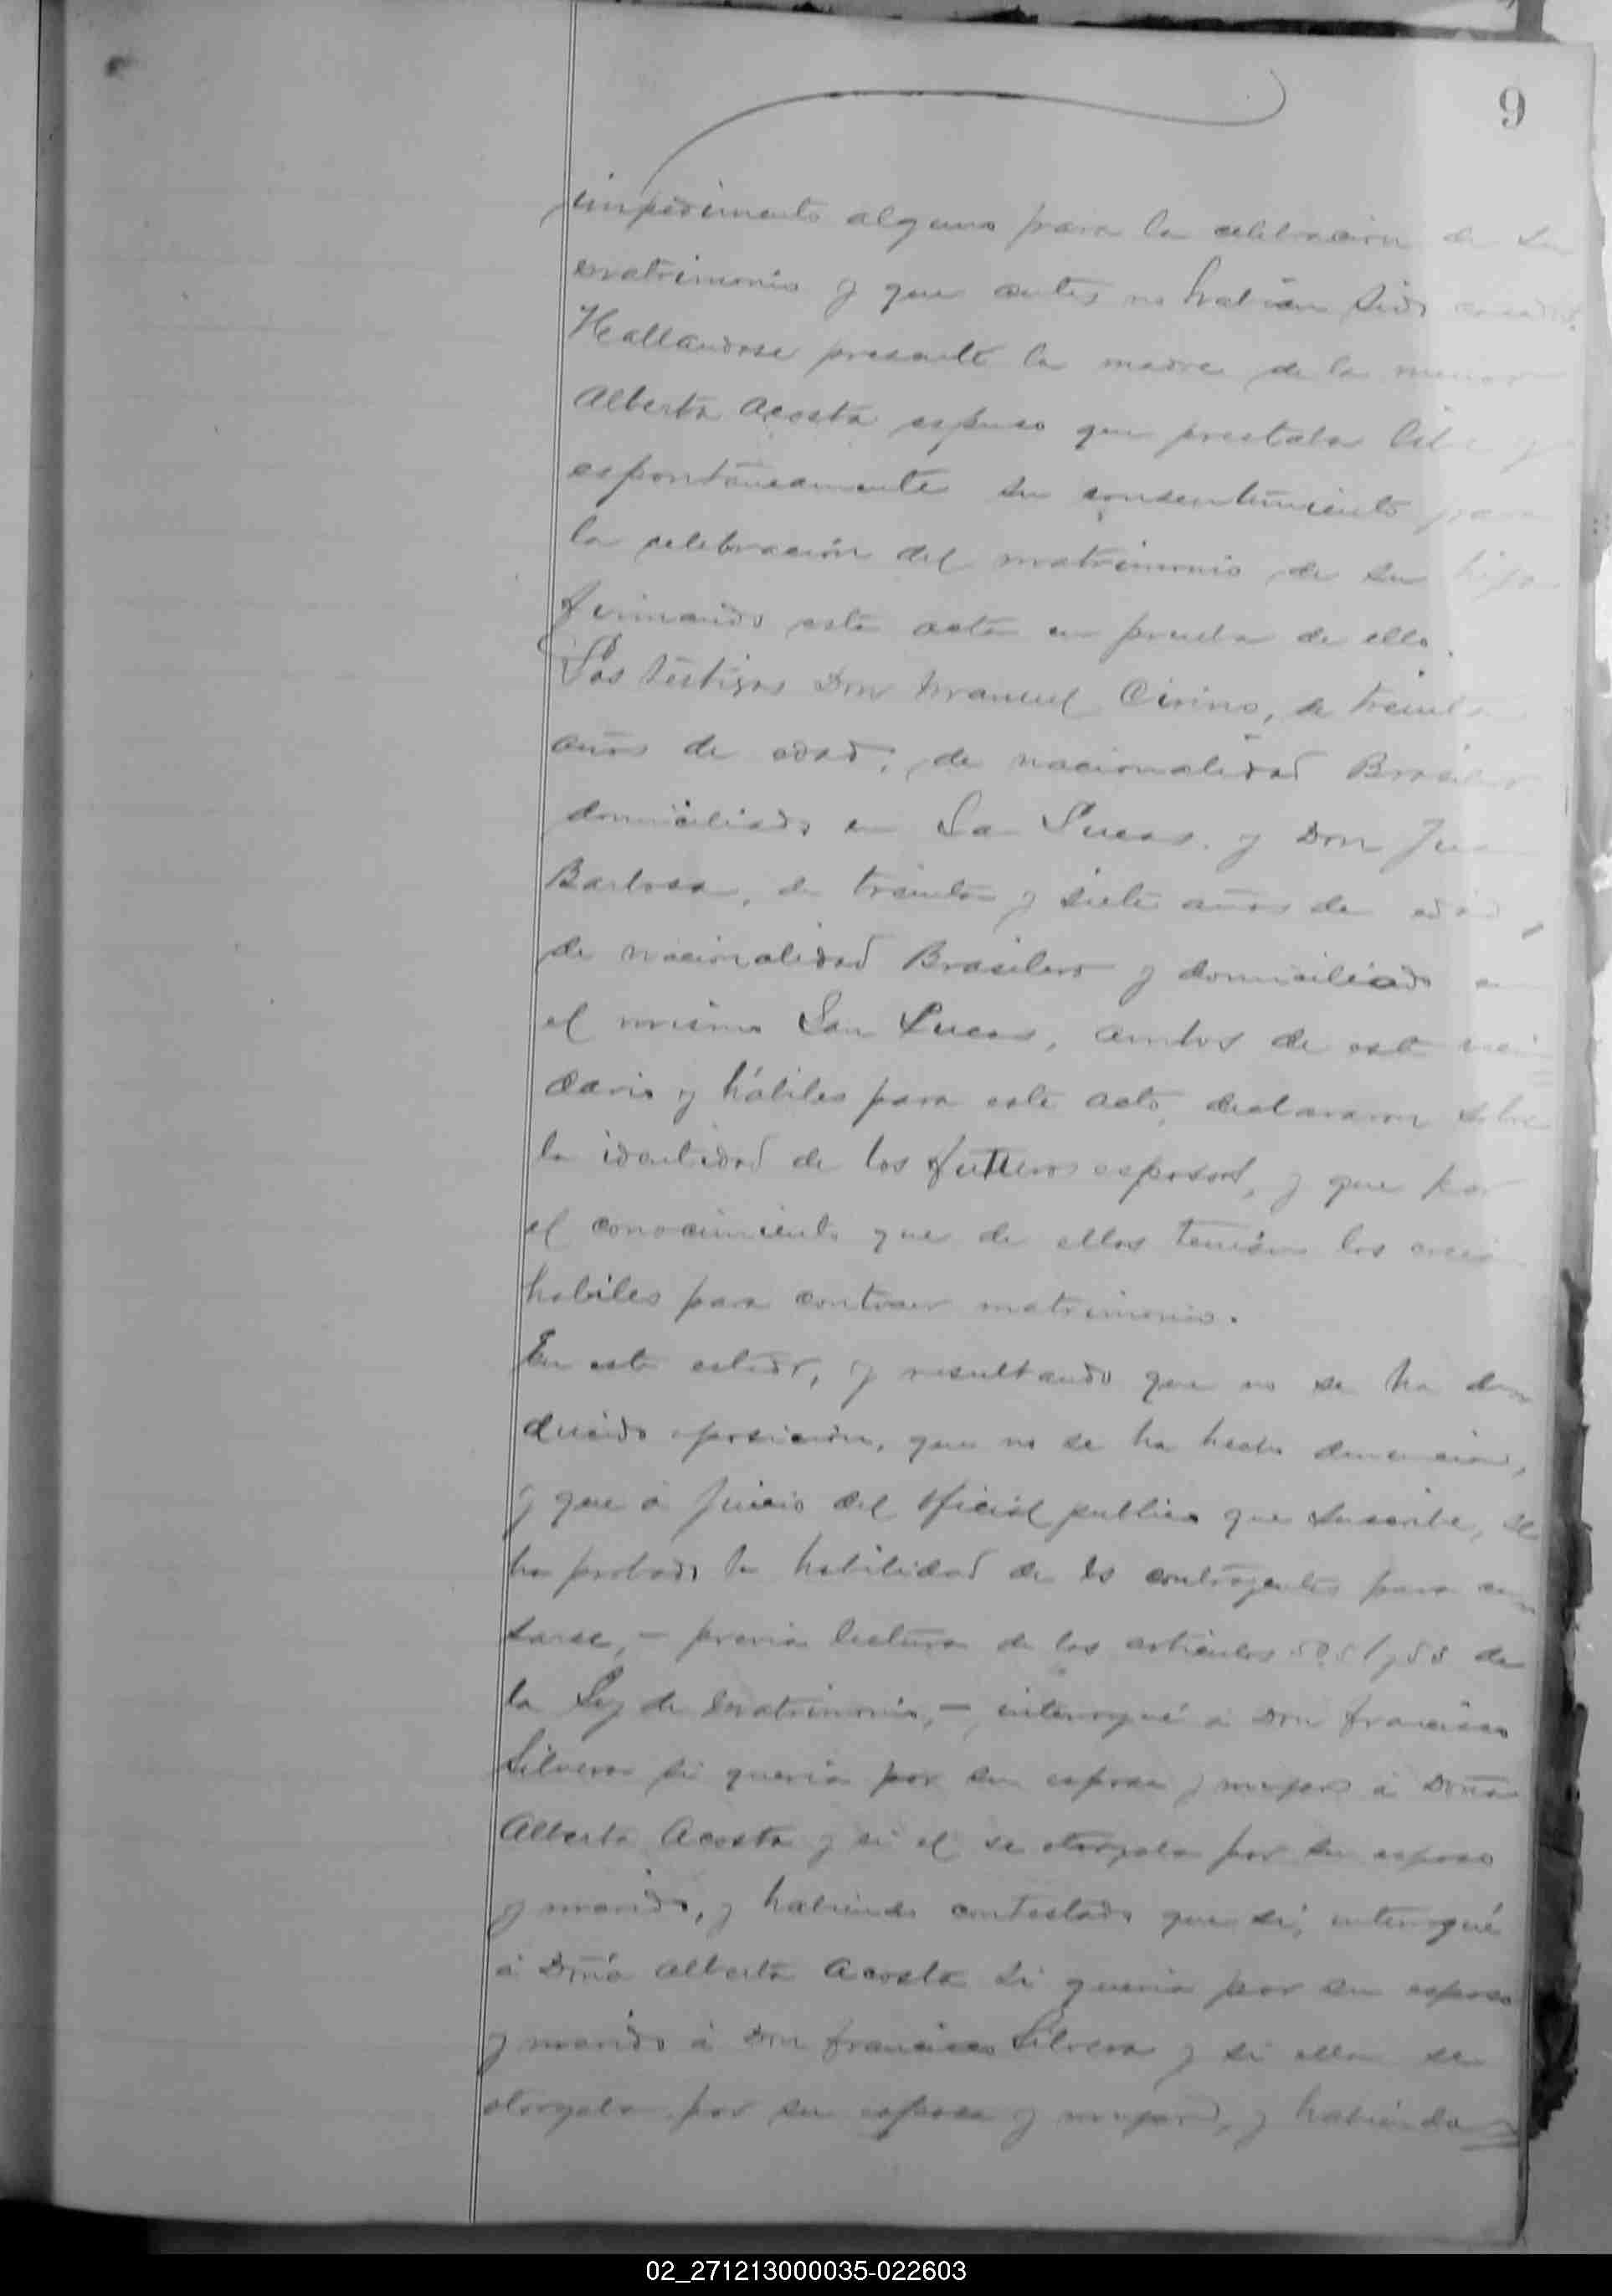 9
impedimento alguno para la celebracion de su
matrimonio y que antes no habian sido casados.
Hallandose presente la madre de la menor
Alberta Acosta espuso que prestaba libre y
espontáneamente su consentimiento para
la celebración del matrimonio de su hija
firmando este acta en prueba de ello.
Los testigos Don Manuel Cirino, de treinta
años de edad, de nacionalidad Brasilero
domiciliado en San Lucas y Don Juan
Barbosa, de treinta y siete años de edad,
de nacionalidad Brasilero y domiciliado en
el mismo San Lucas, ambos de este vecin
dario y hábiles para este acto, declararon sobre
la identidad de los futuros esposos, y que por
el conocimiento que de ellos tenían los creian
habiles para contraer matrimonio.
En este estado, y resultando que no se ha de
ducido oposición, que no se ha hecho denuncia,
y que á juicio del oficial publico que suscribe, se
ha probado la habilidad de los contrayentes para ca
sarse, — previa lectura de los artículos 50. 51 y 53 de
la Ley de Matrimonio, — interrogué á Don Francisco
Silvera si queria por su esposa y mujer á Doña
Alberta Acosta y si el se otorgaba por su esposo
y marido, y habiendo contestado que si, interrogué
á Doña Alberta Acosta si queria por su esposo
y marido á Don Francisco Silvera y si ella se
otorgaba por su esposa y mujer, y habiendo
02_271213000035-022603